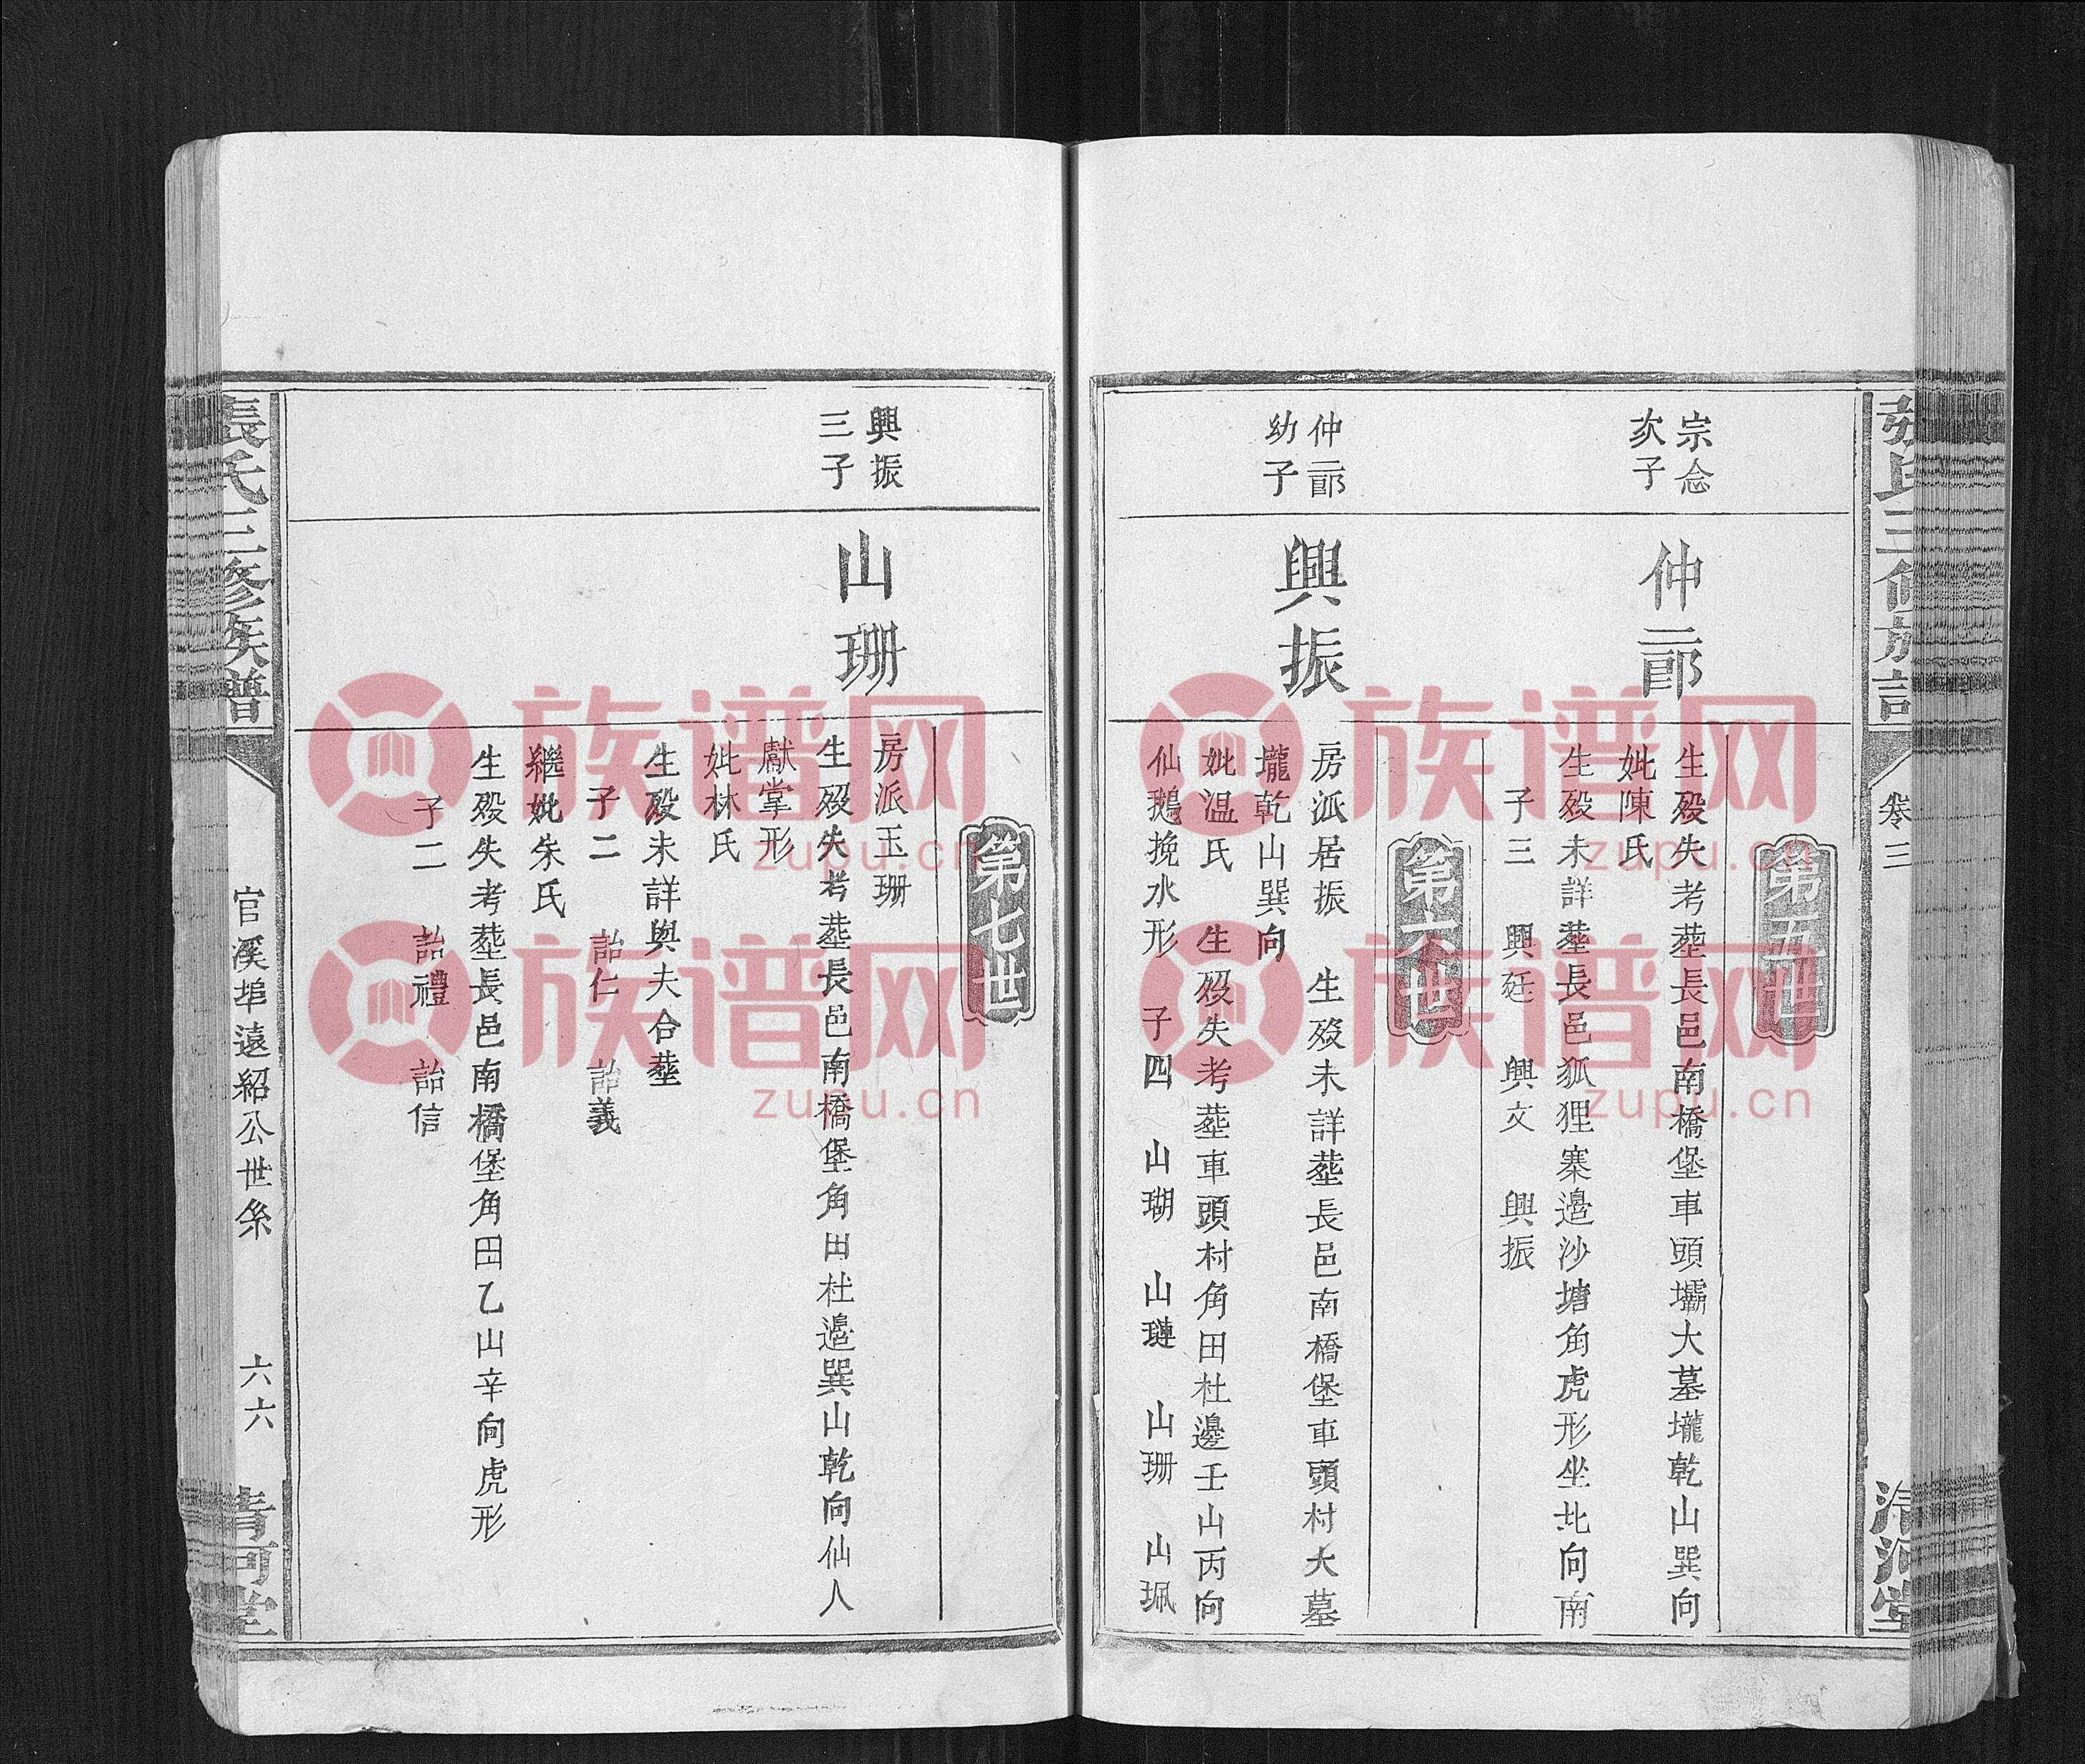 卷三
第五世
宗念
次子
仲二郎
生殁失考塟長邑南橋堡車頭壩大墓壠乾山巽向
妣陳氏
生殁未詳塟長邑狐狸寨邉沙塘角虎形坐北向南
子三 興廷 興文 興振
第六世
仲二郎
幼子
興振
房派居振 生殁未詳塟長邑南橋堡車頭村大墓
壠乾山巽向
妣温氏 生殁失考塟車頭村角田杜邊壬山丙向
仙鵝挽水形 子四 山瑚 山璉 山珊 山珮
清河堂
第七世
興振
三子
山珊
房派玉珊
生殁失考塟長邑南橋堡角田杜邉巽山乾向仙人
獻掌形
妣林氏
生殁未詳與夫合塟
子二 詒仁 詒義
継妣朱氏
生殁失考塟長邑南橋堡角田乙山辛向虎形
子二 詒禮 詒信
張氏三修族譜
官溪埠遠紹公世系
六六
清河堂
族谱网
zupu.cn
族谱网
zupu.cn
族谱网
zupu.cn
族谱网
zupu.cn